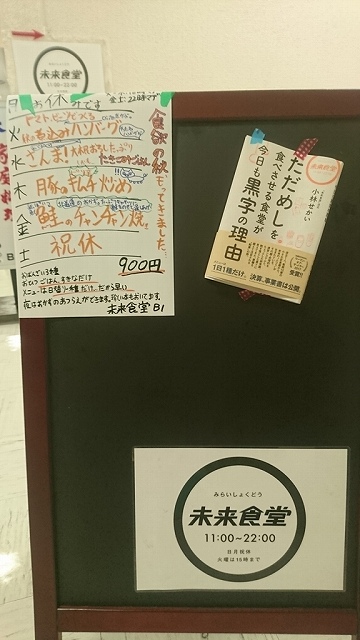 未来食堂
11:00~22:00
月 お休みです
金土:22時まで
火 トマトとピーマンの煮込みハンバーグ
水 さんま!大根おろしたっぷり
木 豚のキムチ炒め
金 鮭のチャンチャン焼き
土 祝休
食欲の秋やってきました。
900円
おばんざい3種
おひつごはん、すきなだけ
メニューは日替り1種だけ。だから早い
夜はおかずのあつらえができます。
未来食堂 B1
ただめしを
食べさせる食堂が
今日も黒字の理由
小林せかい
未来食堂
1日1種だけ。
決算、事業書は公開。
みらいしょくどう
未来食堂
11:00~22:00
日月祝休
火曜は16時まで